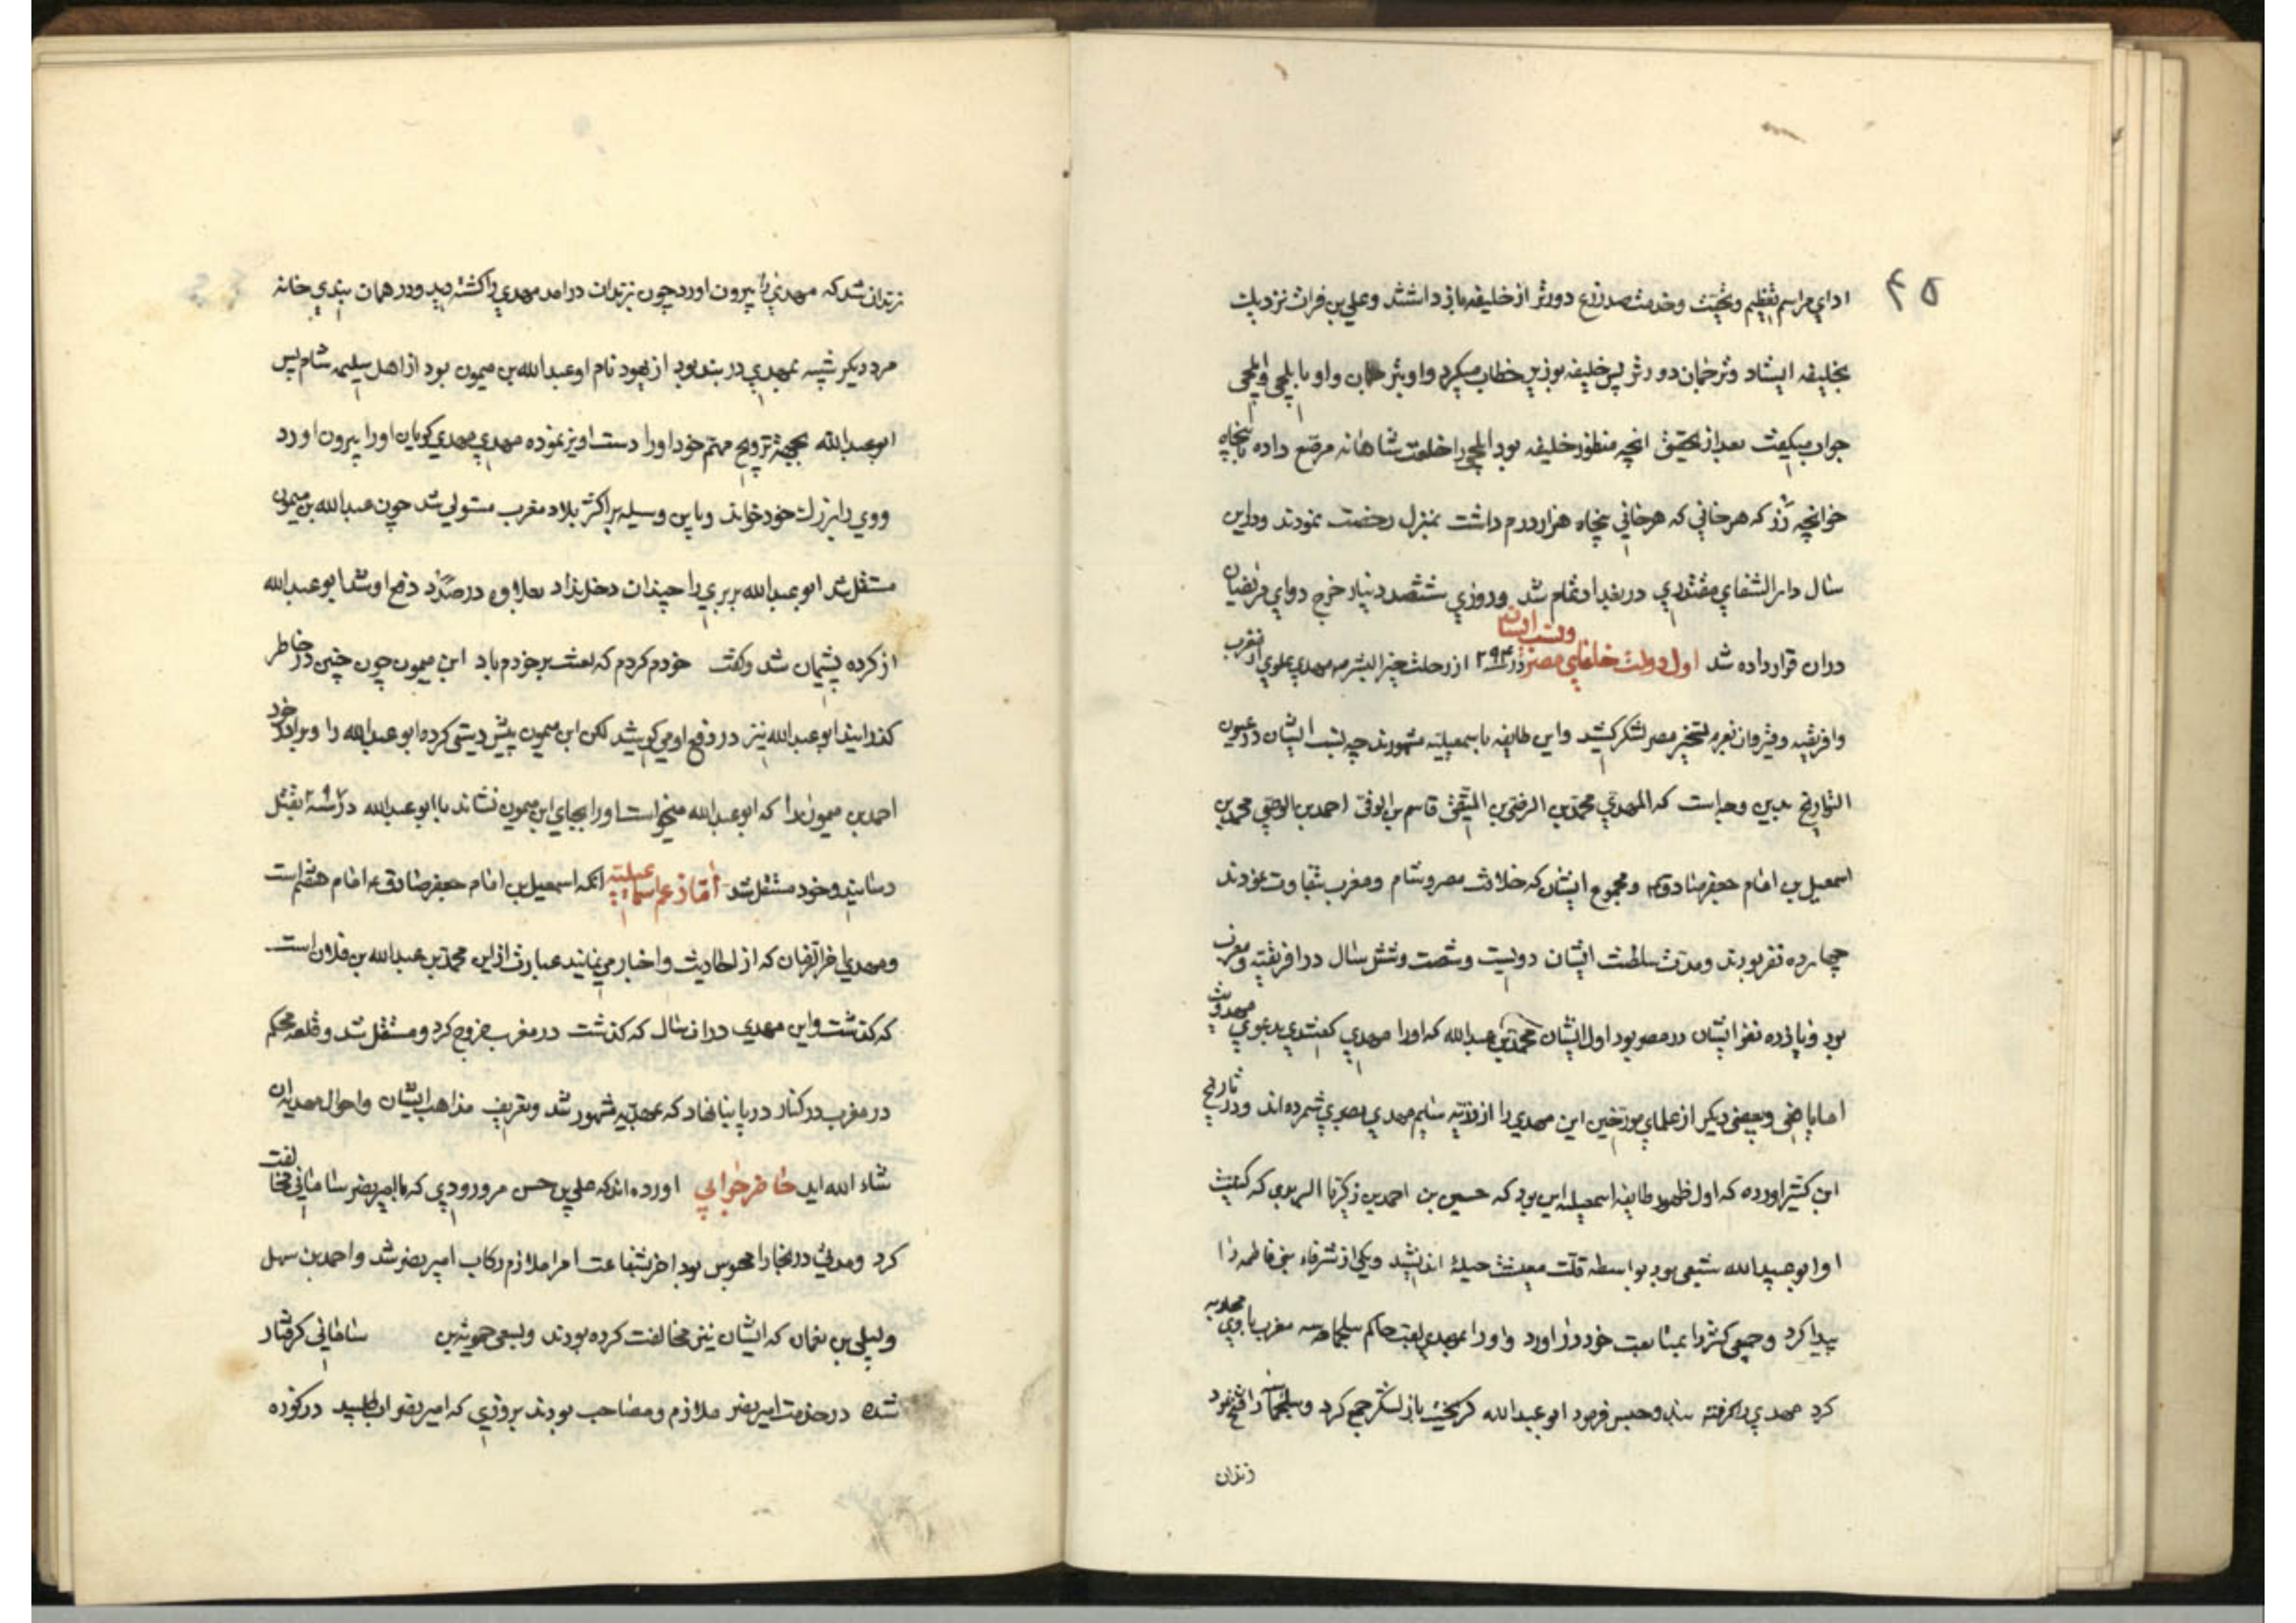 ۴۵
ادای مراسم تعظیم و تحیت و خدمت صد زرع دورتر از خلیفه باز داشتند و علی بن فرات نزدیک
بخلیفه ایستاد و ترجمان دورتر پس خلیفه بوزیر خطاب میکرد و او بترجمان و او بایلچی و ایلچی
جواب میگفت بعد از تحقیق انچه منظور خلیفه بود ایلچی را خلعت شاهانه مرصع داده با پنجاه
خوانچه زر که هر خانی که هر خانی پنجاه هزار درم داشت بمنزل رخصت نمودند و در این
سال دار الشفای مقتدری در بغداد تمام شد و روزی ششصد دینار خرج دوای مریضان
دران قرار داده شد اول دولت خلفای مصر و نسب ایشان در سنه ۲۹۴ از رحلت خیر البشر مهدی علوی از مغرب
و افریقیه و قیروان بعزم تسخیر مصر لشکر کشید و این طایفه باسمعیلیه مشهورند چه نسب ایشان در عیون
التواریخ بدین وجه است که المهدی محمد بن الرضی بن التقی قاسم بن الوفی احمد بن الوصی محمد بن
اسمعیل بن امام جعفر صادق ع و مجموع ایشان که خلافت مصر و شام و مغرب نمودند
چهارده نفر بودند و مدت سلطنت ایشان دویست و شصت و شش سال در افریقیه و مغرب
بود و یازده نفر ایشان در مصر بود اول ایشان محمد بن عبدالله که او را مهدی گفتندی بدعوی مهدویت
اما یافعی و بعضی دیگر از علمای مورخین این مهدی را از ذریه شمرده اند و در تاریخ
ابن کثیر اورده که اول ظهور طایفه اسمعیلیه این بود که حسین بن احمد بن زکریا که کنیت
او ابو عبدالله شیعی بود بواسطه قلت معیشت حیلهٔ اندیشید و یکی از شرفاء بنی فاطمه را
پیدا کرد و جمعی کثیر را بمتابعت خود در اورد و او را لقب حاکم سلجماسه مغرب با وی محاربه
کرد مهدی را گرفته بند و حبس فرمود ابو عبدالله گریخت باز لشکر جمع کرد و سلجماسه را فتح نمود
زندان
زندان شد که مهدی را بیرون اورد چون بزندان درامد مهدی را کشته دید و در همان بندی خانه
مرد دیگر شبیه بمهدی در بند بود از یهود نام او عبدالله بن میمون بود از اهل سلیمه شام پس
ابو عبدالله بجهة ترویج مهم خود او را دست اویز نموده مهدی مهدی گویان او را بیرون اورد
و وی را بزرک خود خواند و باین وسیله بر اکثر بلاد مغرب مستولی شد چون عبدالله بن میمون
مستقل شد ابو عبدالله بربری را چندان دخل نداد بعلاوه در صدد دفع او شد ابو عبدالله
از کرده پشیمان شد و گفت خودم کردم که لعنت بر خودم باد ابن میمون چون چنین در خاطر
گذرانید ابو عبدالله نیز در دفع او میکوشید لکن ابن میمون پیش دستی کرده ابو عبدالله را و برادر خود
احمد بن میمون را که ابو عبدالله میخواست او را بجای ابن میمون نشاند با ابو عبدالله در سنه ۲۹۷ بقتل
رسانید و خود مستقل شد اما زعم اسماعیلیه انکه اسمعیل بن امام جعفر صادق ع امام هفتم است
و مهدی اخر الزمان که از احادیث و اخبار می نمایند عبارت از این محمد بن عبدالله بن فلان است
که گذشت و این مهدی دران سال که گذشت در مغرب خروج کرد و مستقل شد و قلعه محکم
در مغرب در کنار دریا بنا نهاد که بمهدیه مشهور شد و تعریف مذاهب ایشان و احوال مهدیان
شاء الله اید حاضر جوابی اورده اند که علی بن حسن مرورودی که با امیر نصر سامانی مخالفت
کرد و مدتی در بخارا محبوس بود اخر بشفاعت امرا ملازم رکاب امیر نصر شد و احمد بن سهل
و لیلی بن نعمان که ایشان نیز مخالفت کرده بودند و بسعی حمویه بن سامانی گرفتار
شده در خدمت امیر نصر ملازم و مصاحب بودند بروزی که امیر نصر اب طلبید در کوزه